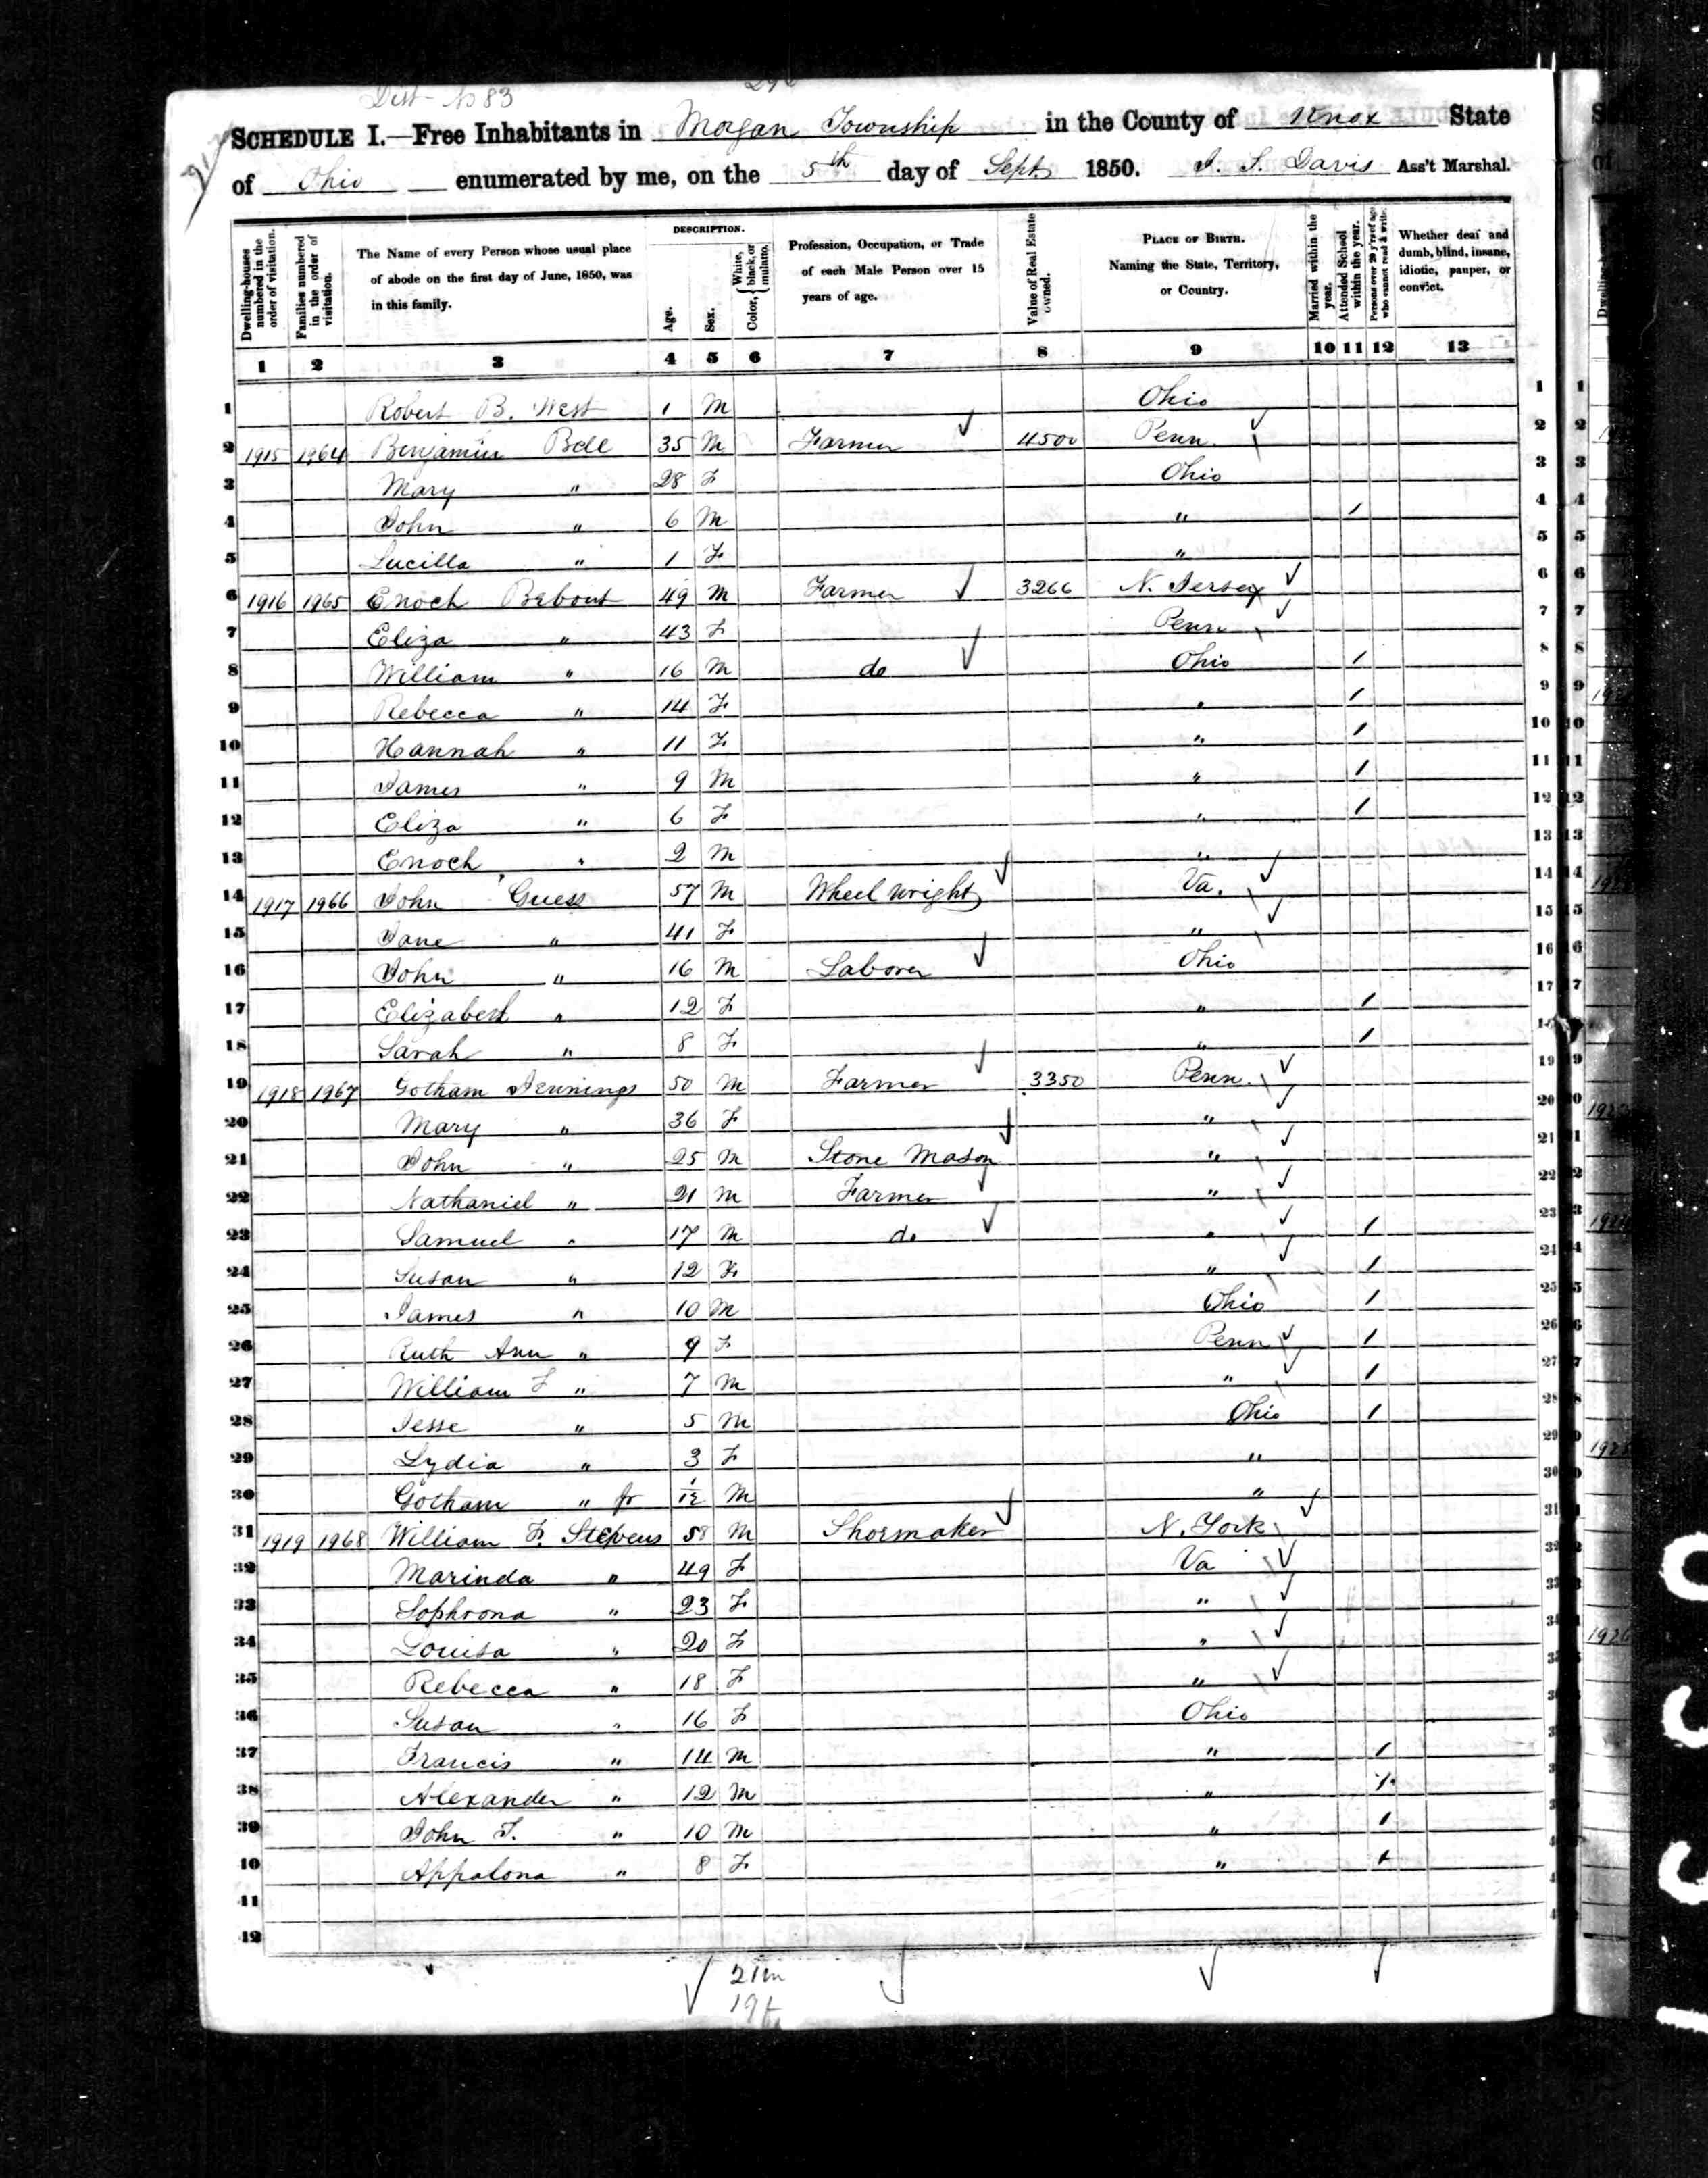 Dist No 83
SCHEDULE I.—Free Inhabitants in Morgan Township in the County of Knox State
of Ohio enumerated by me, on the 5th day of Sept 1850. I. S. Davis Ass't Marshal.
Dwelling-houses numbered in the order of visitation.
Families numbered in the order of visitation.
The Name of every Person whose usual place of abode on the first day of June, 1850, was in this family.
DESCRIPTION.
Age.
Sex.
Color, { White, black, or mulatto.
Profession, Occupation, or Trade of each Male Person over 15 years of age.
Value of Real Estate owned.
PLACE OF BIRTH. Naming the State, Territory, or Country.
Married within the year.
Attended School within the year.
Persons over 20 y'rs of age who cannot read & write.
Whether deaf and dumb, blind, insane, idiotic, pauper, or convict.
1 2 3 4 5 6 7 8 9 10 11 12 13
1 Robert B. West 1 M Ohio 1
2 1915 1964 Benjamin Bell 35 M Farmer 4500 Penn. 2
3 Mary " 28 F Ohio 3
4 John " 6 M " / 4
5 Lucilla " 1 F " 5
6 1916 1965 Enoch Bebout 49 M Farmer 3266 N. Jersey 6
7 Eliza " 43 F Penn 7
8 William " 16 M do Ohio / 8
9 Rebecca " 14 F " / 9
10 Hannah " 11 F " / 10
11 James " 9 M " / 11
12 Eliza " 6 F " / 12
13 Enoch " 2 M " 13
14 1917 1966 John Guess 57 M Wheel wright Va. 14
15 Jane " 41 F " 15
16 John " 16 M Laborer Ohio 16
17 Elizabeth " 12 F " / 17
18 Sarah " 8 F " / 18
19 1918 1967 Gotham Jennings 50 M Farmer 3350 Penn. 19
20 Mary " 36 F " 20
21 John " 25 M Stone Mason " 21
22 Nathaniel " 21 M Farmer " 22
23 Samuel " 17 M do " / 23
24 Susan " 12 F " / 24
25 James " 10 M Ohio / 25
26 Ruth Ann " 9 F Penn / 26
27 William F " 7 M " / 27
28 Jesse " 5 M Ohio / 28
29 Lydia " 3 F " 29
30 Gotham " Jr 1/12 M " 30
31 1919 1968 William F. Stevens 58 M Shoemaker N. York 31
32 Marinda " 49 F Va
33 Sophrona " 23 F "
34 Louisa " 20 F "
35 Rebecca " 18 F "
36 Susan " 16 F Ohio
37 Francis " 14 M " /
38 Alexander " 12 M " /
39 John T. " 10 M " /
40 Appalona " 8 F " /
41
42
21 m
19 f